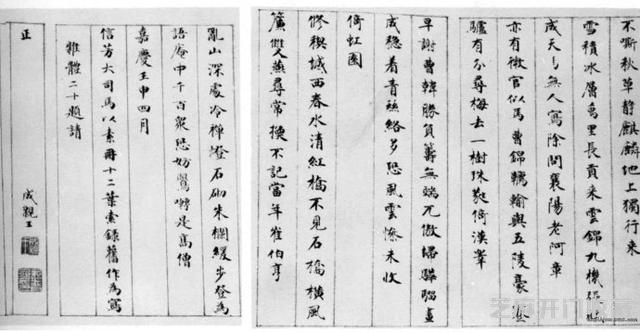 不嘶秋草静麒麟地上獨行来
雪積冰層萬里長貢来雲錦九機
成天馬無人寫除問襄陽老阿章
亦有微官似馬曹錦韉輸與五陵豪蹇
驢有分尋梅去一樹珠蕤倚漢皋
早謝曹韓勝負籌無端兀傲驎腦畫
成愁着青絲絡多恐風雲慘未收
倚虹園
修禊城西春水清紅橋不見石橋横風
簾雙燕尋常換不記當年崔伯亨
亂山深處冷禪燈石砌朱欄緩步登為
語庵中千百衆恐妨鶯囀是高僧
嘉慶壬申四月
信芳大司馬以素冊十二葉索錄舊作為寫
雜體二十題請
正
成親王